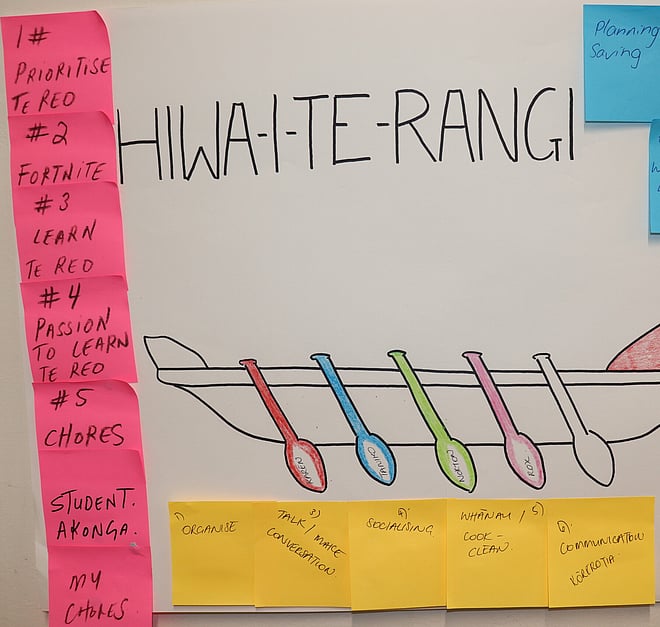 1#
PRIORITISE
TE REO
#2
FORTNITE
#3
LEARN
TE REO
#4
PASSION
TO LEARN
TE REO
#5
CHORES
STUDENT.
AKONGA.
MY
CHORES
HIWA-I-TE-RANGI
Planning
Saving
ROX
1) ORGANISE
3)
TALK / MAKE
CONVERSATION
4)
SOCIALISING
WHĀNAU / 5)
COOK -
CLEAN.
6)
COMMUNICATION
KŌREROTIA